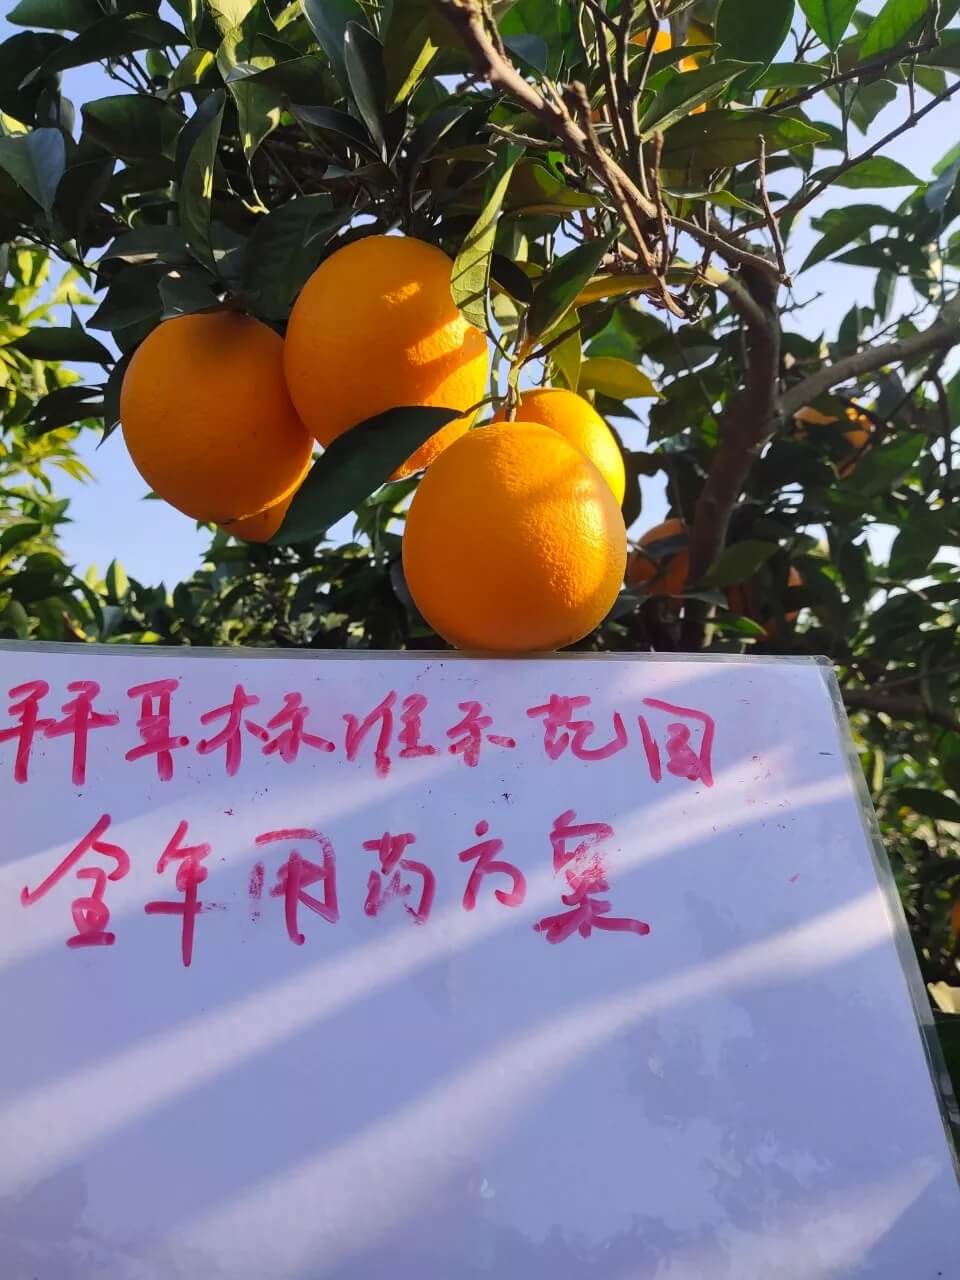 拜耳标准示范园
全年用药方案